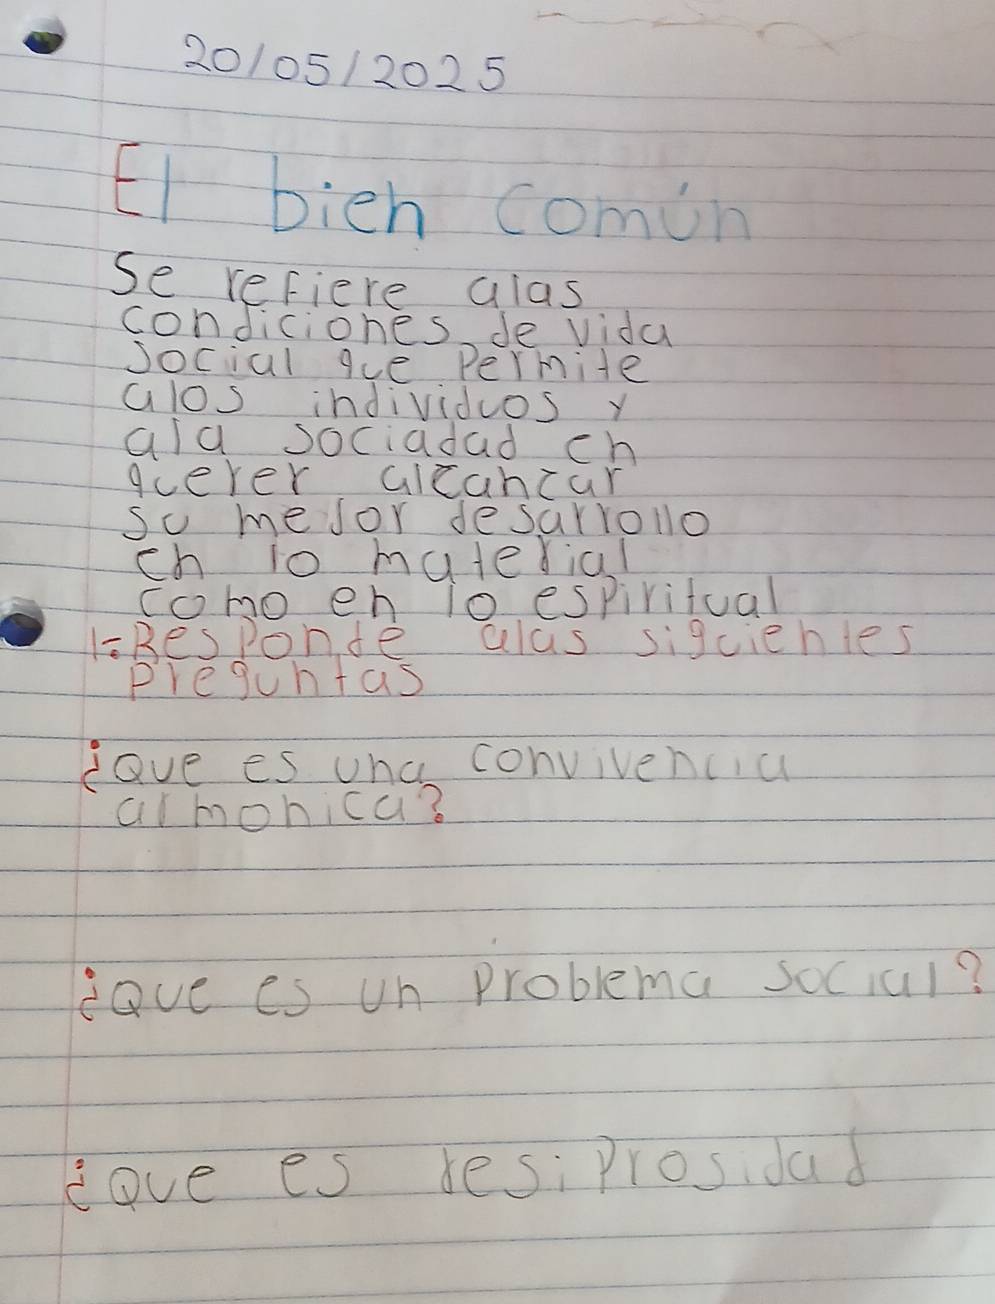 20/05/2025
El bien común
Se refiere alas
condiciones de vida
social que permite
alos individuos y
ala sociadad en
querer alcanzar
su mejor desarrollo
en lo material
como en lo espiritual
1-Responde alas siguientes
preguntas
¿Que es una convivencia
armonica?
¿Que es un problema social?
¿Que es resiprosidad